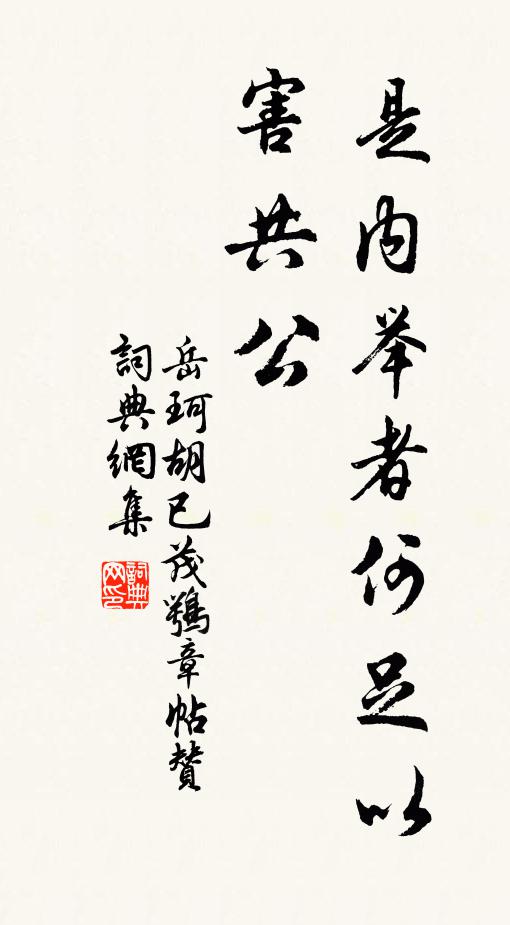 是内举者何足以
害共公
岳珂胡己茂鶚章帖赞
詞典網集
詞典网印